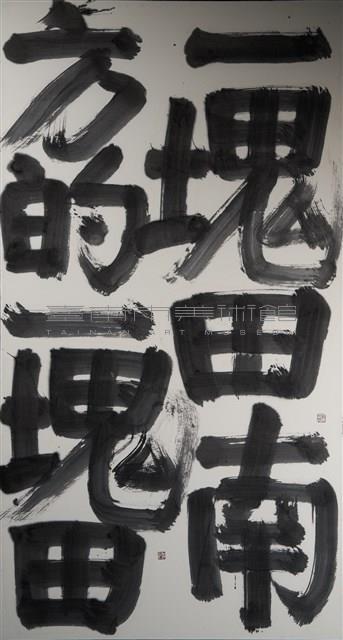 一塊田南
方的一塊田
臺南市美術館
TAINAN ART MUSEUM